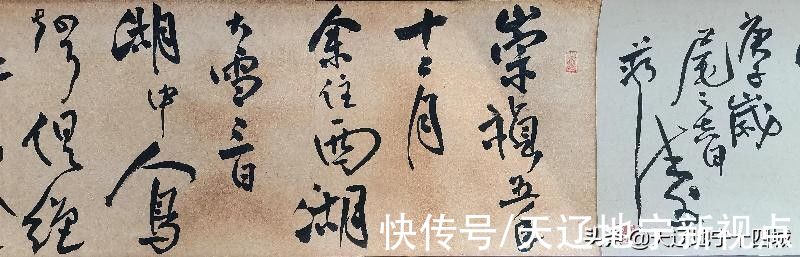 庚子歲
尾之吉日
崇禎五年
十二月
余住西湖
大雪三日
湖中人鳥
聲俱絕
快传号/天辽地宁新视点
头条@天辽地宁